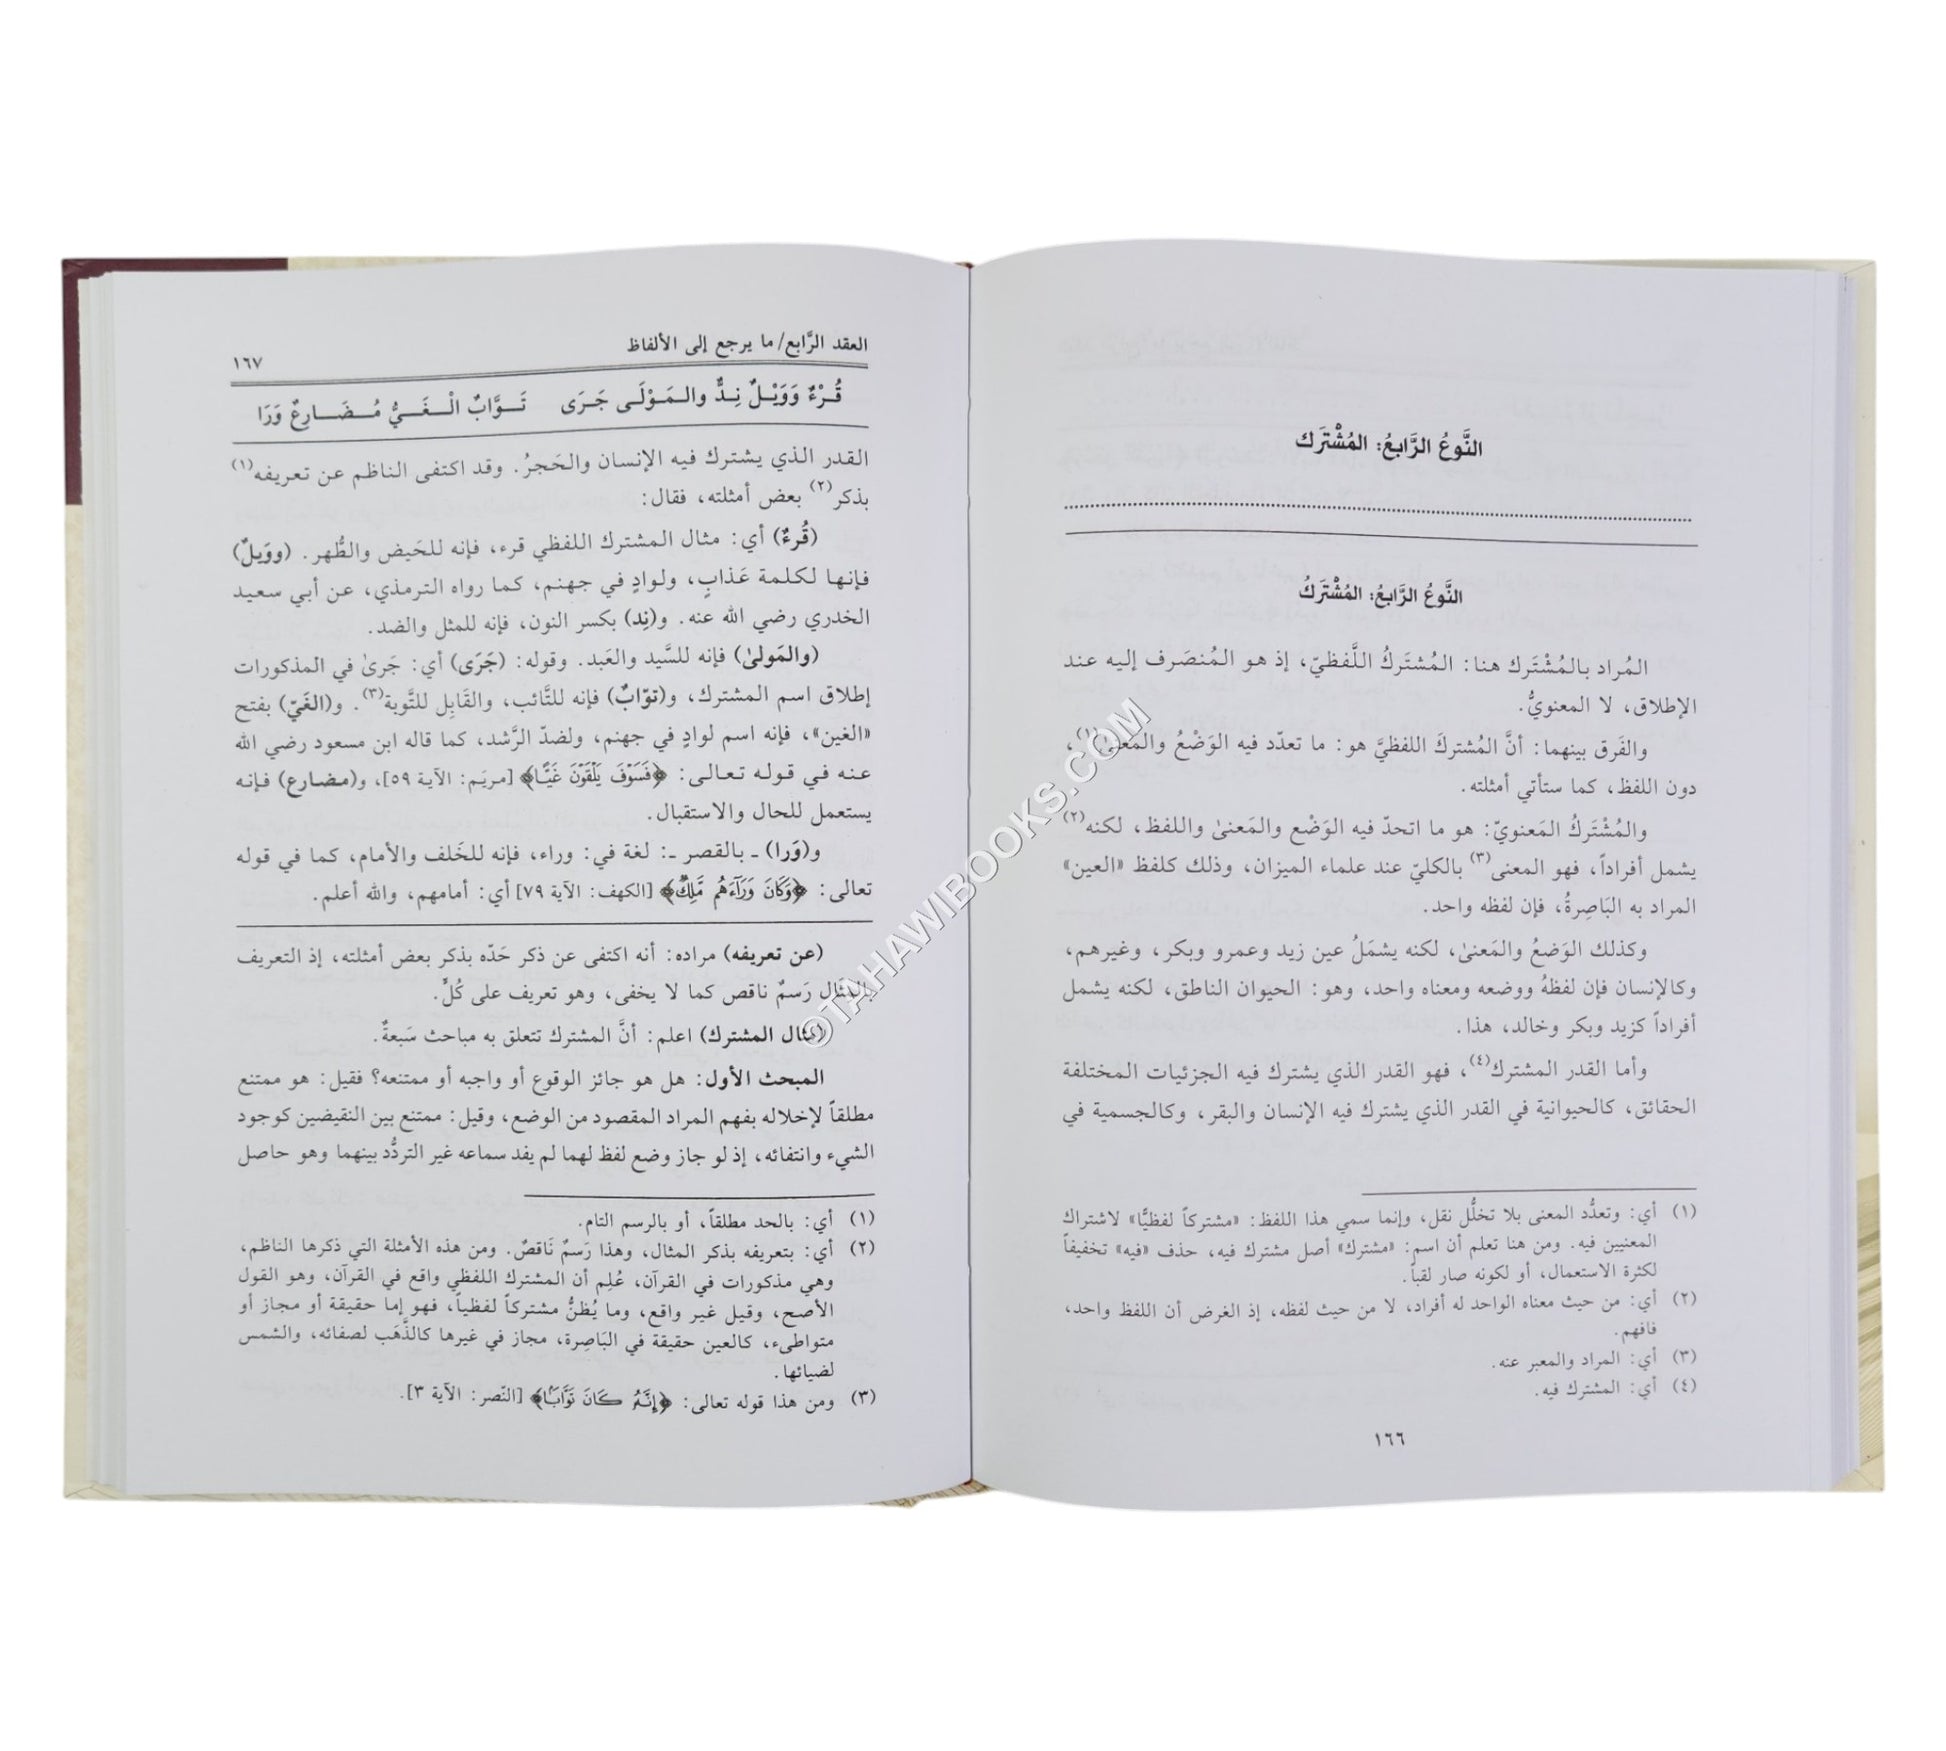 النَّوعُ الرَّابعُ: المُشْتَرَك
النَّوعُ الرَّابعُ: المُشْتَرَكُ
المُراد بالمُشْتَرَك هنا: المُشتَركُ اللَّفظيّ، إذ هو المُنصَرف إليه عند
الإطلاق، لا المعنويُّ.
والفَرق بينهما: أنَّ المُشتركَ اللفظيَّ هو: ما تعدّد فيه الوَضْعُ والمَعنىٰ(١)،
دون اللفظ، كما ستأتي أمثلته.
والمُشْتَركُ المَعنويّ: هو ما اتحدّ فيه الوَضْع والمَعنىٰ واللفظ، لكنه(٢)
يشمل أفراداً، فهو المعنى(٣) بالكليّ عند علماء الميزان، وذلك كلفظ «العين»
المراد به البَاصِرةُ، فإن لفظه واحد.
وكذلك الوَضعُ والمَعنىٰ، لكنه يشمَلُ عين زيد وعمرو وبكر، وغيرهم،
وكالإنسان فإن لفظهُ ووضعه ومعناه واحد، وهو: الحيوان الناطق، لكنه يشمل
أفراداً كزيد وبكر وخالد، هذا.
وأما القدر المشترك(٤)، فهو القدر الذي يشترك فيه الجزئيات المختلفة
الحقائق، كالحيوانية في القدر الذي يشترك فيه الإنسان والبقر، وكالجسمية في
(١) أي: وتعدُّد المعنى بلا تخلُّل نقل، وإنما سمي هذا اللفظ: «مشتركاً لفظيًّا» لاشتراك
المعنيين فيه. ومن هنا تعلم أن اسم: «مشترك» أصل مشترك فيه، حذف «فيه» تخفيفاً
لكثرة الاستعمال، أو لكونه صار لقباً.
(٢) أي: من حيث معناه الواحد له أفراد، لا من حيث لفظه، إذ الغرض أن اللفظ واحد،
فافهم.
(٣) أي: المراد والمعبر عنه.
(٤) أي: المشترك فيه.
١٦٦
العقد الرَّابع/ ما يرجع إلى الألفاظ
١٦٧
قُـرْءٌ وَوَيْـلٌ نِـدٌّ والـمَـوْلَـى جَـرَى تَـوَّابٌ الْـغَـيُّ مُـضَـارِعٌ وَرَا
القدر الذي يشترك فيه الإنسان والحَجرُ. وقد اكتفى الناظم عن تعريفه(١)
بذكر(٢) بعض أمثلته، فقال:
(قُرءٌ) أي: مثال المشترك اللفظي قرء، فإنه للحَيض والطُّهر. (وويلٌ)
فإنها لكلمة عَذابٍ، ولوادٍ في جهنم، كما رواه الترمذي، عن أبي سعيد
الخدري رضي الله عنه. و(نِد) بكسر النون، فإنه للمثل والضد.
(والمَولىٰ) فإنه للسَّيد والعَبد. وقوله: (جَرَى) أي: جَرىٰ في المذكورات
إطلاق اسم المشترك، و(توّابٌ) فإنه للتَّائب، والقَابِل للتَّوبة(٣). و(الغَيّ) بفتح
«الغين»، فإنه اسم لوادٍ في جهنم، ولضدّ الرَّشد، كما قاله ابن مسعود رضي الله
عنه في قوله تعالى: ﴿فَسَوْفَ يَلْقَوْنَ غَيًّا﴾ [مريَم: الآية ٥٩]، و(مضارع) فإنه
يستعمل للحال والاستقبال.
و(وَرا) ـ بالقصر ـ: لغة في: وراء، فإنه للخَلف والأمام، كما في قوله
تعالى: ﴿وَكَانَ وَرَآءَهُم مَّلِكٌ﴾ [الكهف: الآية ٧٩] أي: أمامهم، والله أعلم.
(عن تعريفه) مراده: أنه اكتفى عن ذكر حَدّه بذكر بعض أمثلته، إذ التعريف
بالمثَال رَسمٌ ناقص كما لا يخفى، وهو تعريف على كُلٍّ.
(مثال المشترك) اعلم: أنَّ المشترك تتعلق به مباحث سَبعةٌ.
المبحث الأول: هل هو جائز الوقوع أو واجبه أو ممتنعه؟ فقيل: هو ممتنع
مطلقاً لإخلاله بفهم المراد المقصود من الوضع، وقيل: ممتنع بين النقيضين كوجود
الشيء وانتفائه، إذ لو جاز وضع لفظ لهما لم يفد سماعه غير التردُّد بينهما وهو حاصل
(١) أي: بالحد مطلقاً، أو بالرسم التام.
(٢) أي: بتعريفه بذكر المثال، وهذا رَسمٌ نَاقصٌ. ومن هذه الأمثلة التي ذكرها الناظم،
وهي مذكورات في القرآن، عُلِم أن المشترك اللفظي واقع في القرآن، وهو القول
الأصح، وقيل غير واقع، وما يُظنُّ مشتركاً لفظياً، فهو إما حقيقة أو مجاز أو
متواطىء، كالعين حقيقة في البَاصِرة، مجاز في غيرها كالذَّهَب لصفائه، والشمس
لضيائها.
(٣) ومن هذا قوله تعالى: ﴿إِنَّهُ كَانَ تَوَّابًا﴾ [النّصر: الآية ٣].
©TAHAWIBOOKS.COM